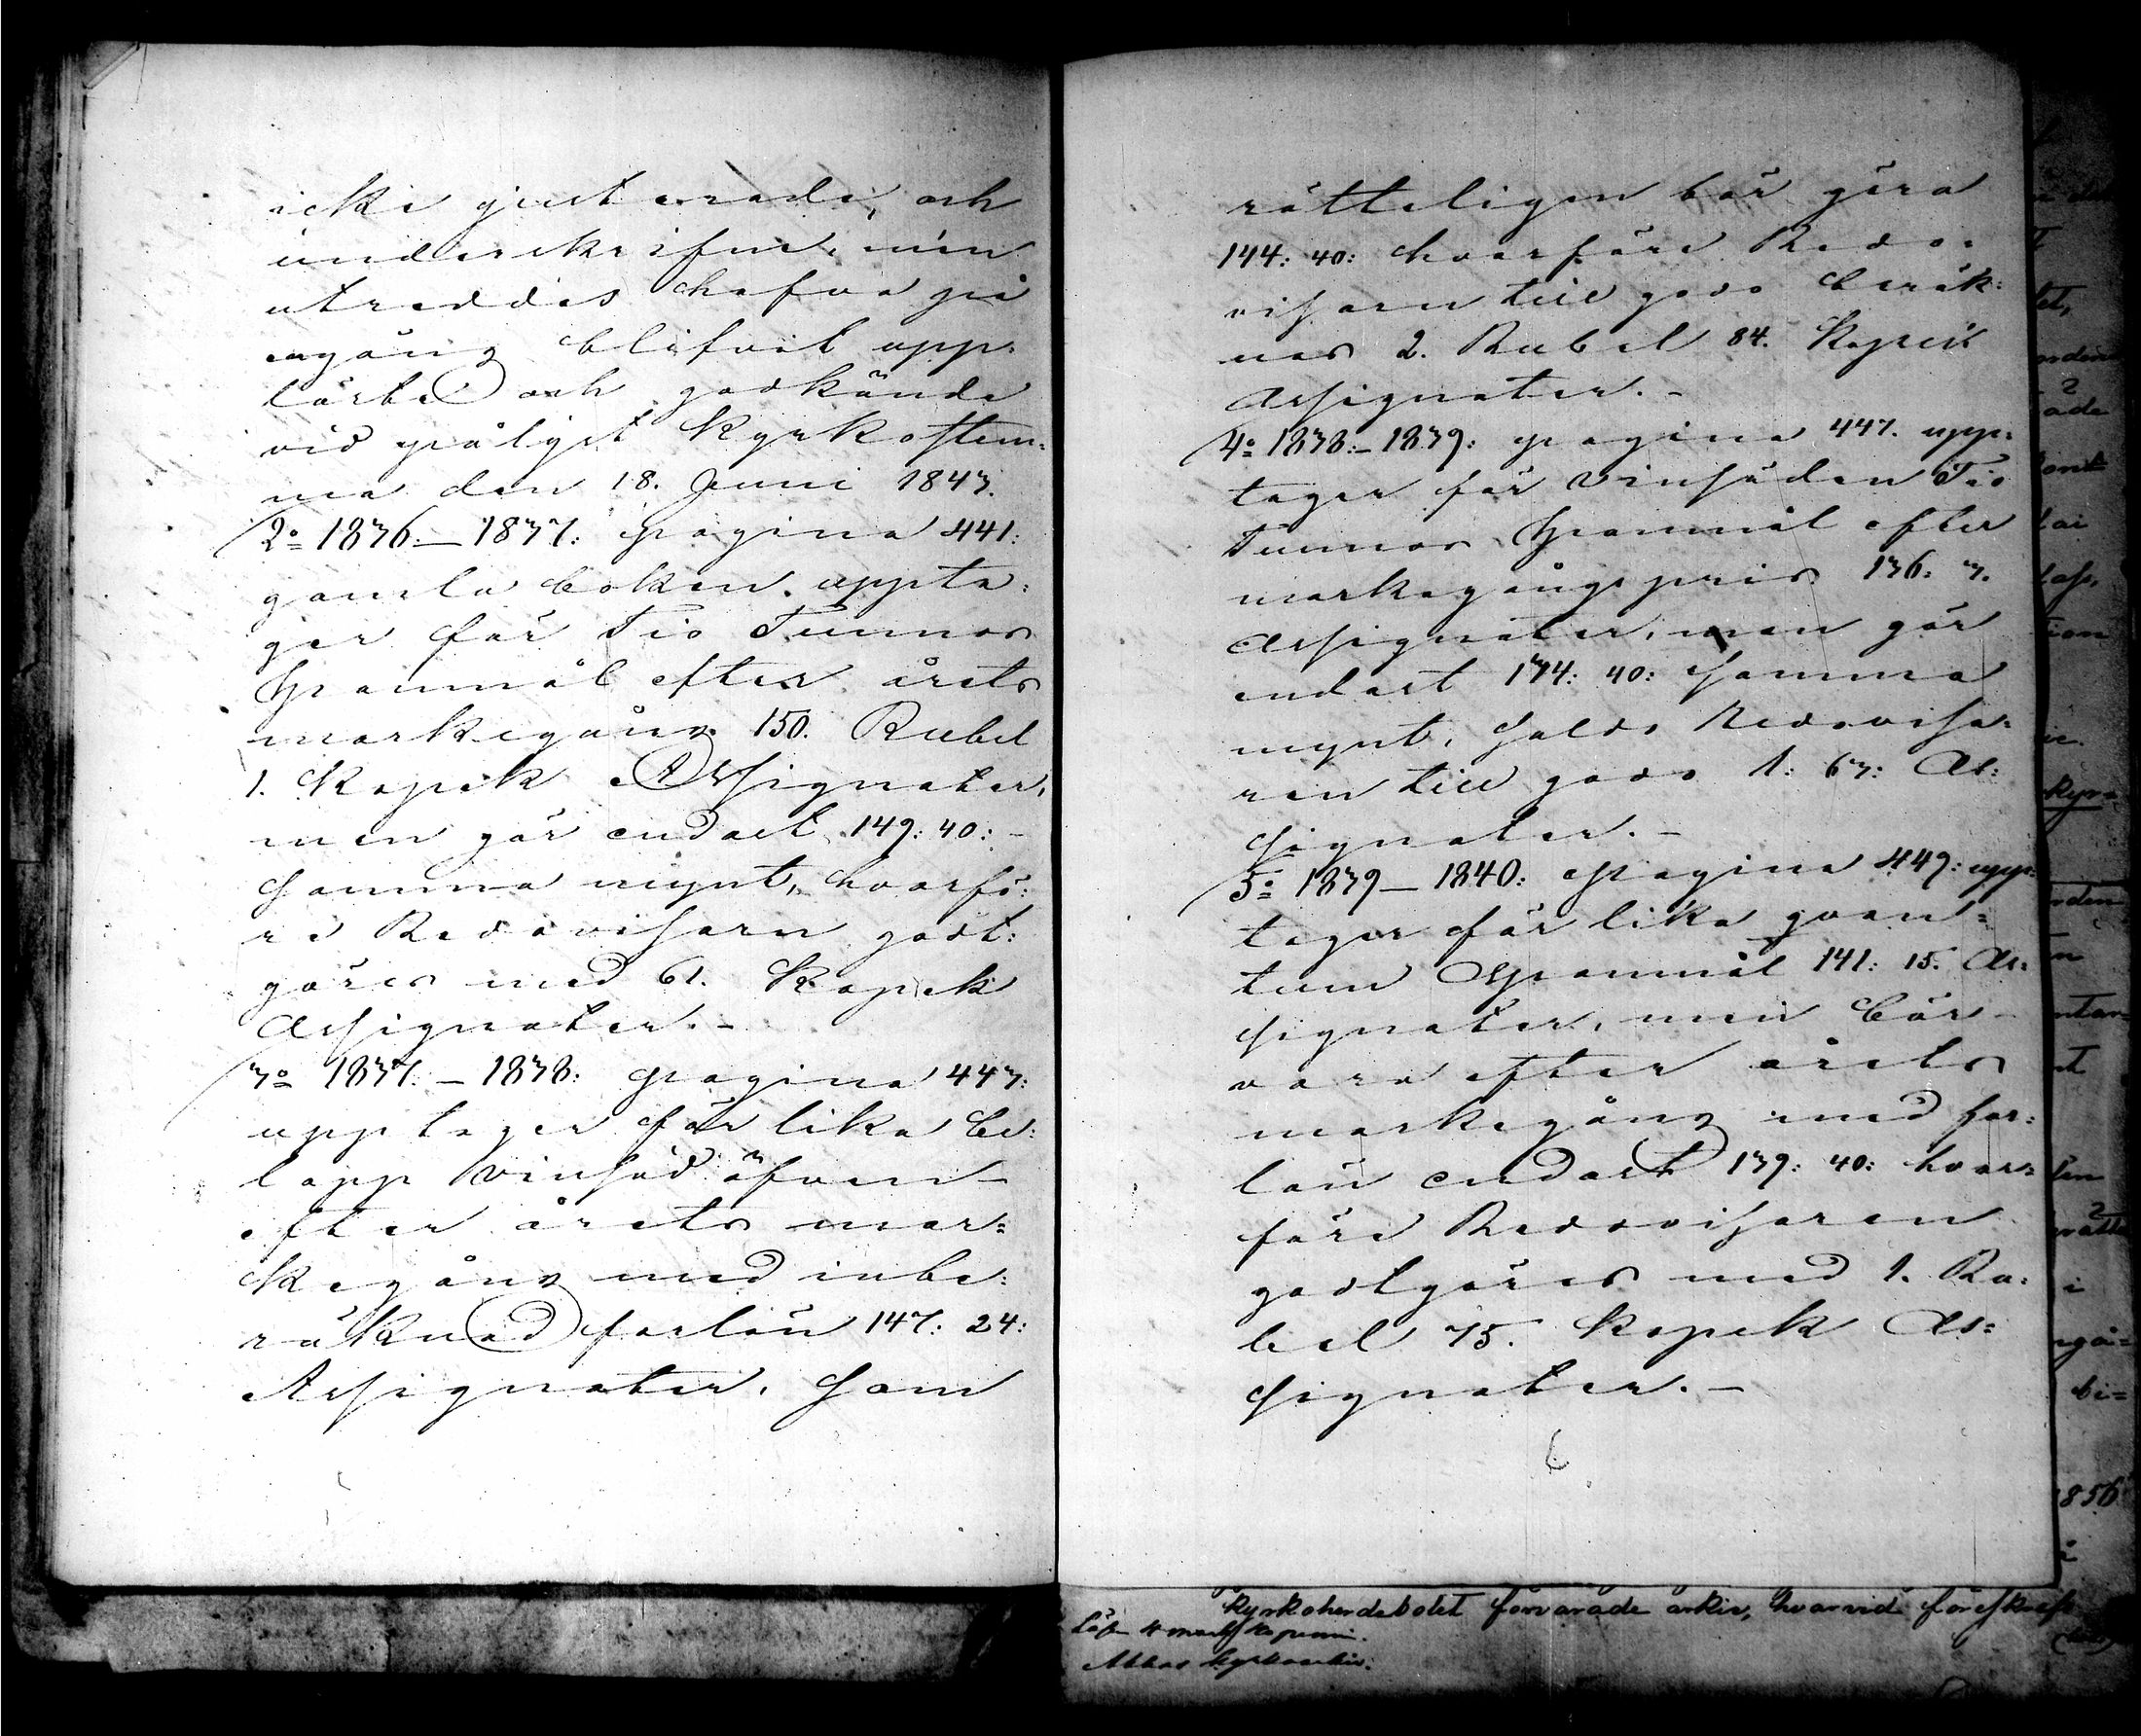 icke justerade, och
underskrifne, men
utreddes hafva på
engång blifvit upp-
läste och godkände
vid pålyst Kyrkostem-
ma den 18. Juni 1843.
2:o 1836.–1837: pagina 441:
gamla boken, uppta-
ger för Tio Tunnor
Spanmål efter årets
markegång 150. Rubel
1. Kopek Assignater,
men gör endast 149: 40: –
samma mynt, hvarfö:
re Redovisaren godt:
göres med 61. Kopek
Assignater. –
3:o 1837. – 1838: pagina 443:
upptager för lika be:
lopp vinsäd äfven
efter årets mar=
kegång med inbe:
räknad forlön 147: 24:
Assignater, som
rätteligen bör göra
144: 40: hvarföre Redo:
visaren till godo beräk:
nas 2. Rubel 84. Kopek
Assignater. –
4:o 1838:–1839: pagina 447. upp=
tager för Vinsäden Tio
Tunnor Spanmål efter
markegångspris 136: 3.
Assignater, men gör
endast 134: 40: samma
mynt, Saldo Redovisa=
ren till godo 1: 63: As:
signater. –
5:o 1839 – 1840: pagina 449: upp=
tager för lika qvan=
tum Spanmål 141: 15. As:
signater, men bör
vara efter årets
markegång med for:
lön endast 139: 40: hvar=
före Redovisaren
godtgöres med 1. Ru:
bel 75. Kopek As=
signater. –
Kyrkoherdebolet förvarade arkiv, hvarvid föreskrefs